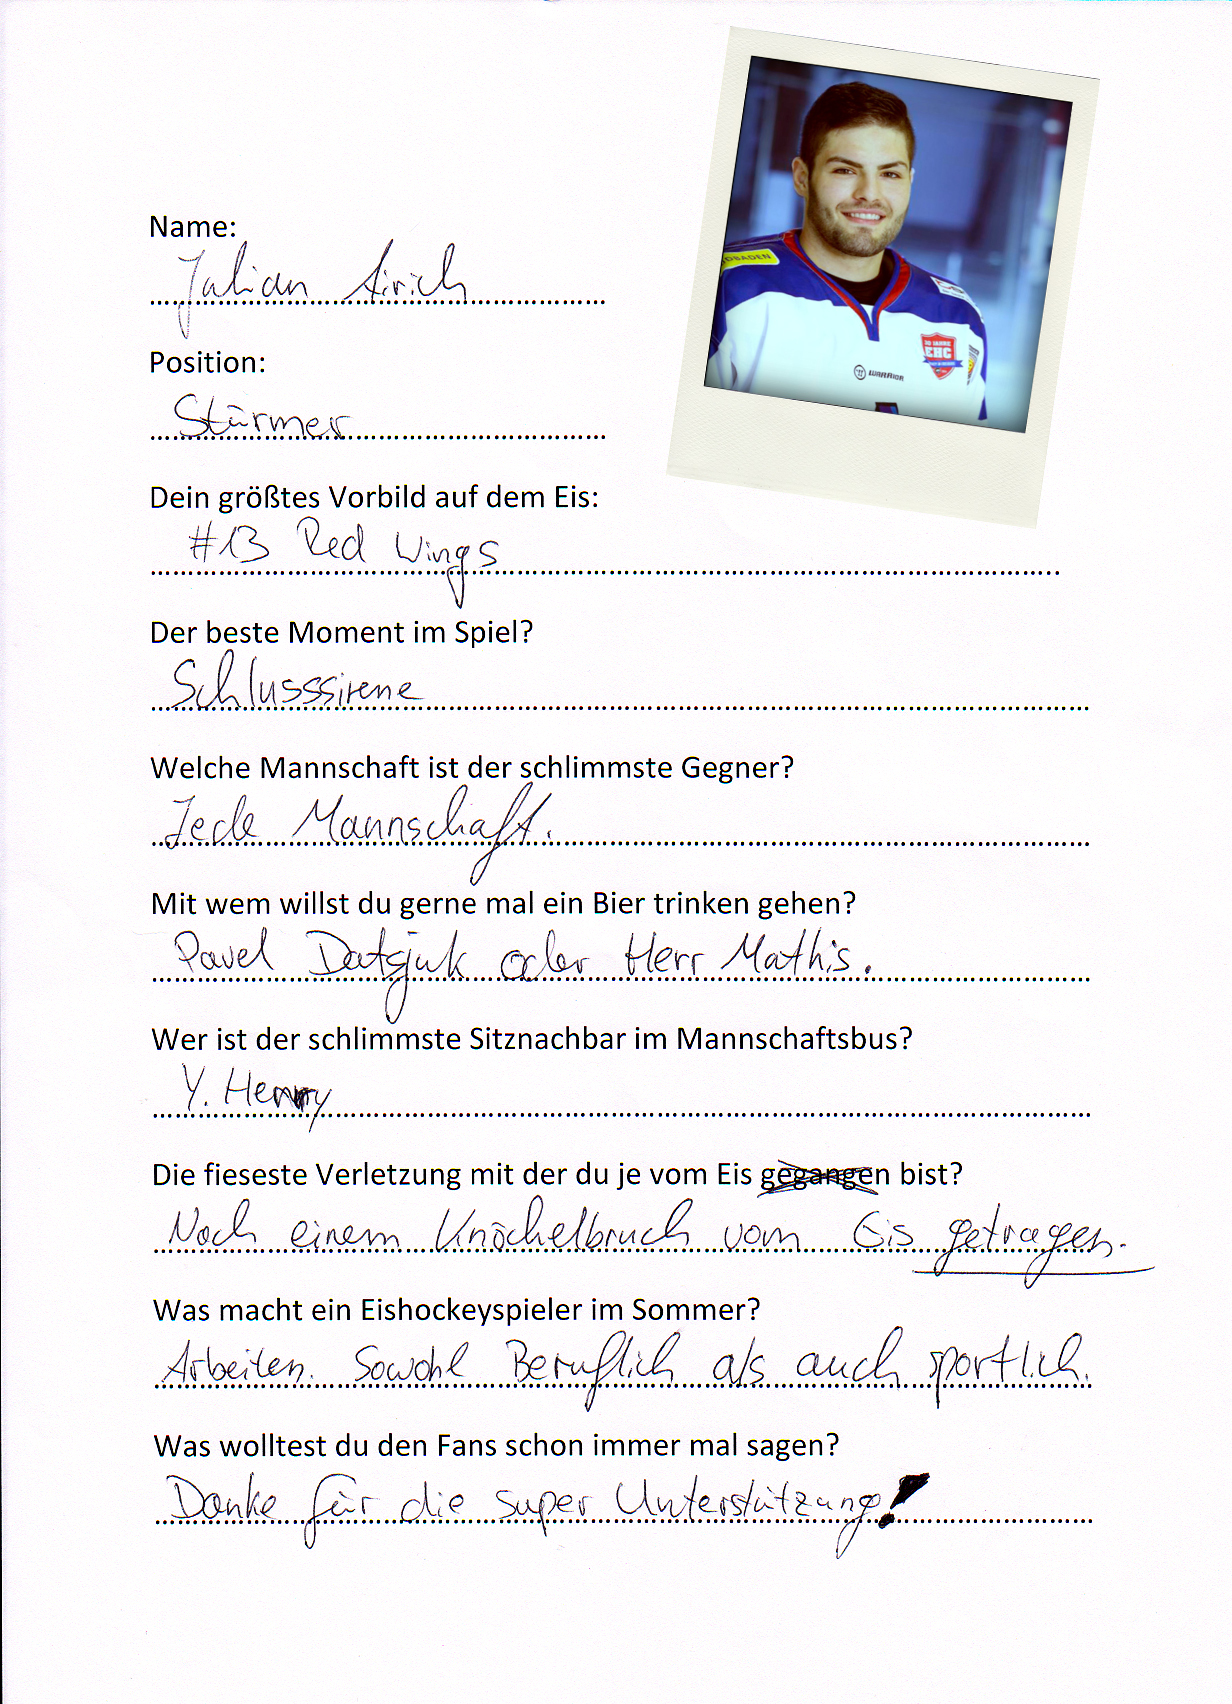 DBADEN
30 JAHRE
EHC
WARRIOR
Name:
Julian Airich
Position:
Stürmer
Dein größtes Vorbild auf dem Eis:
#13 Red Wings
Der beste Moment im Spiel?
Schlusssirene
Welche Mannschaft ist der schlimmste Gegner?
Jede Mannschaft.
Mit wem willst du gerne mal ein Bier trinken gehen?
Pavel Datsjuk oder Herr Mathis.
Wer ist der schlimmste Sitznachbar im Mannschaftsbus?
Y. Henry
Die fieseste Verletzung mit der du je vom Eis gegangen bist?
Nach einem Knöchelbruch vom Eis getragen.
Was macht ein Eishockeyspieler im Sommer?
Arbeiten. Sowohl Beruflich als auch sportlich.
Was wolltest du den Fans schon immer mal sagen?
Danke für die super Unterstützung!